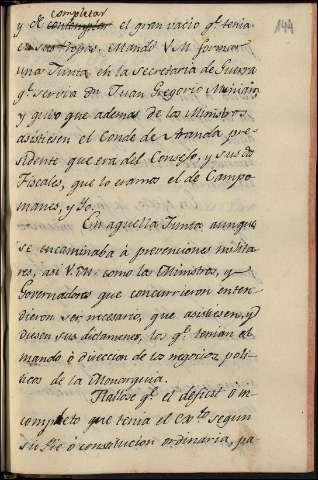 completar
144
y de contemplar el gran vacio qe. tenia
en sus Tropas. Mandó V.M. formar
una Junta en la secretaria de Guerra
qe. servia Dn. Juan Gregorio Muniain,
y quiso que ademas de los Ministros
asistiesen el Conde de Aranda pre-
sidente que era del Consejo, y sus dos
Fiscales, que lo eramos el de Campo-
manes, y Yo.
En aquella Junta aunque
se encaminaba à prevenciones milita-
res, asi V.M. como los Ministros, y
Governadores que concurrieron enten-
dieron ser necesario, que asistiesen, y
diesen sus dictamenes, los qe. tenian el
mando ò direccion de los negocios poli-
ticos de la Monarquia.
Hallose qe. el deficit ò in-
completo que tenia el Exto. segun
su Pie ò constitucion ordinaria, pa-